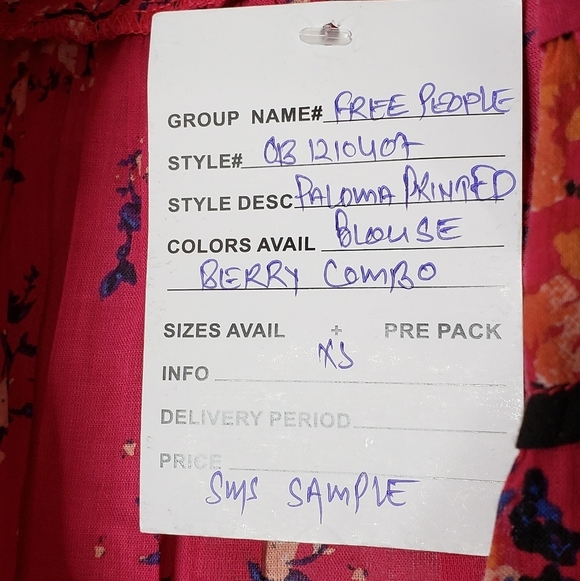 GROUP NAME# FREE PEOPLE
STYLE# OB1210407
STYLE DESC PALOMA PRINTED
COLORS AVAIL BLOUSE
BERRY COMBO
SIZES AVAIL + PRE PACK
XS
INFO
DELIVERY PERIOD
PRICE
SMS SAMPLE